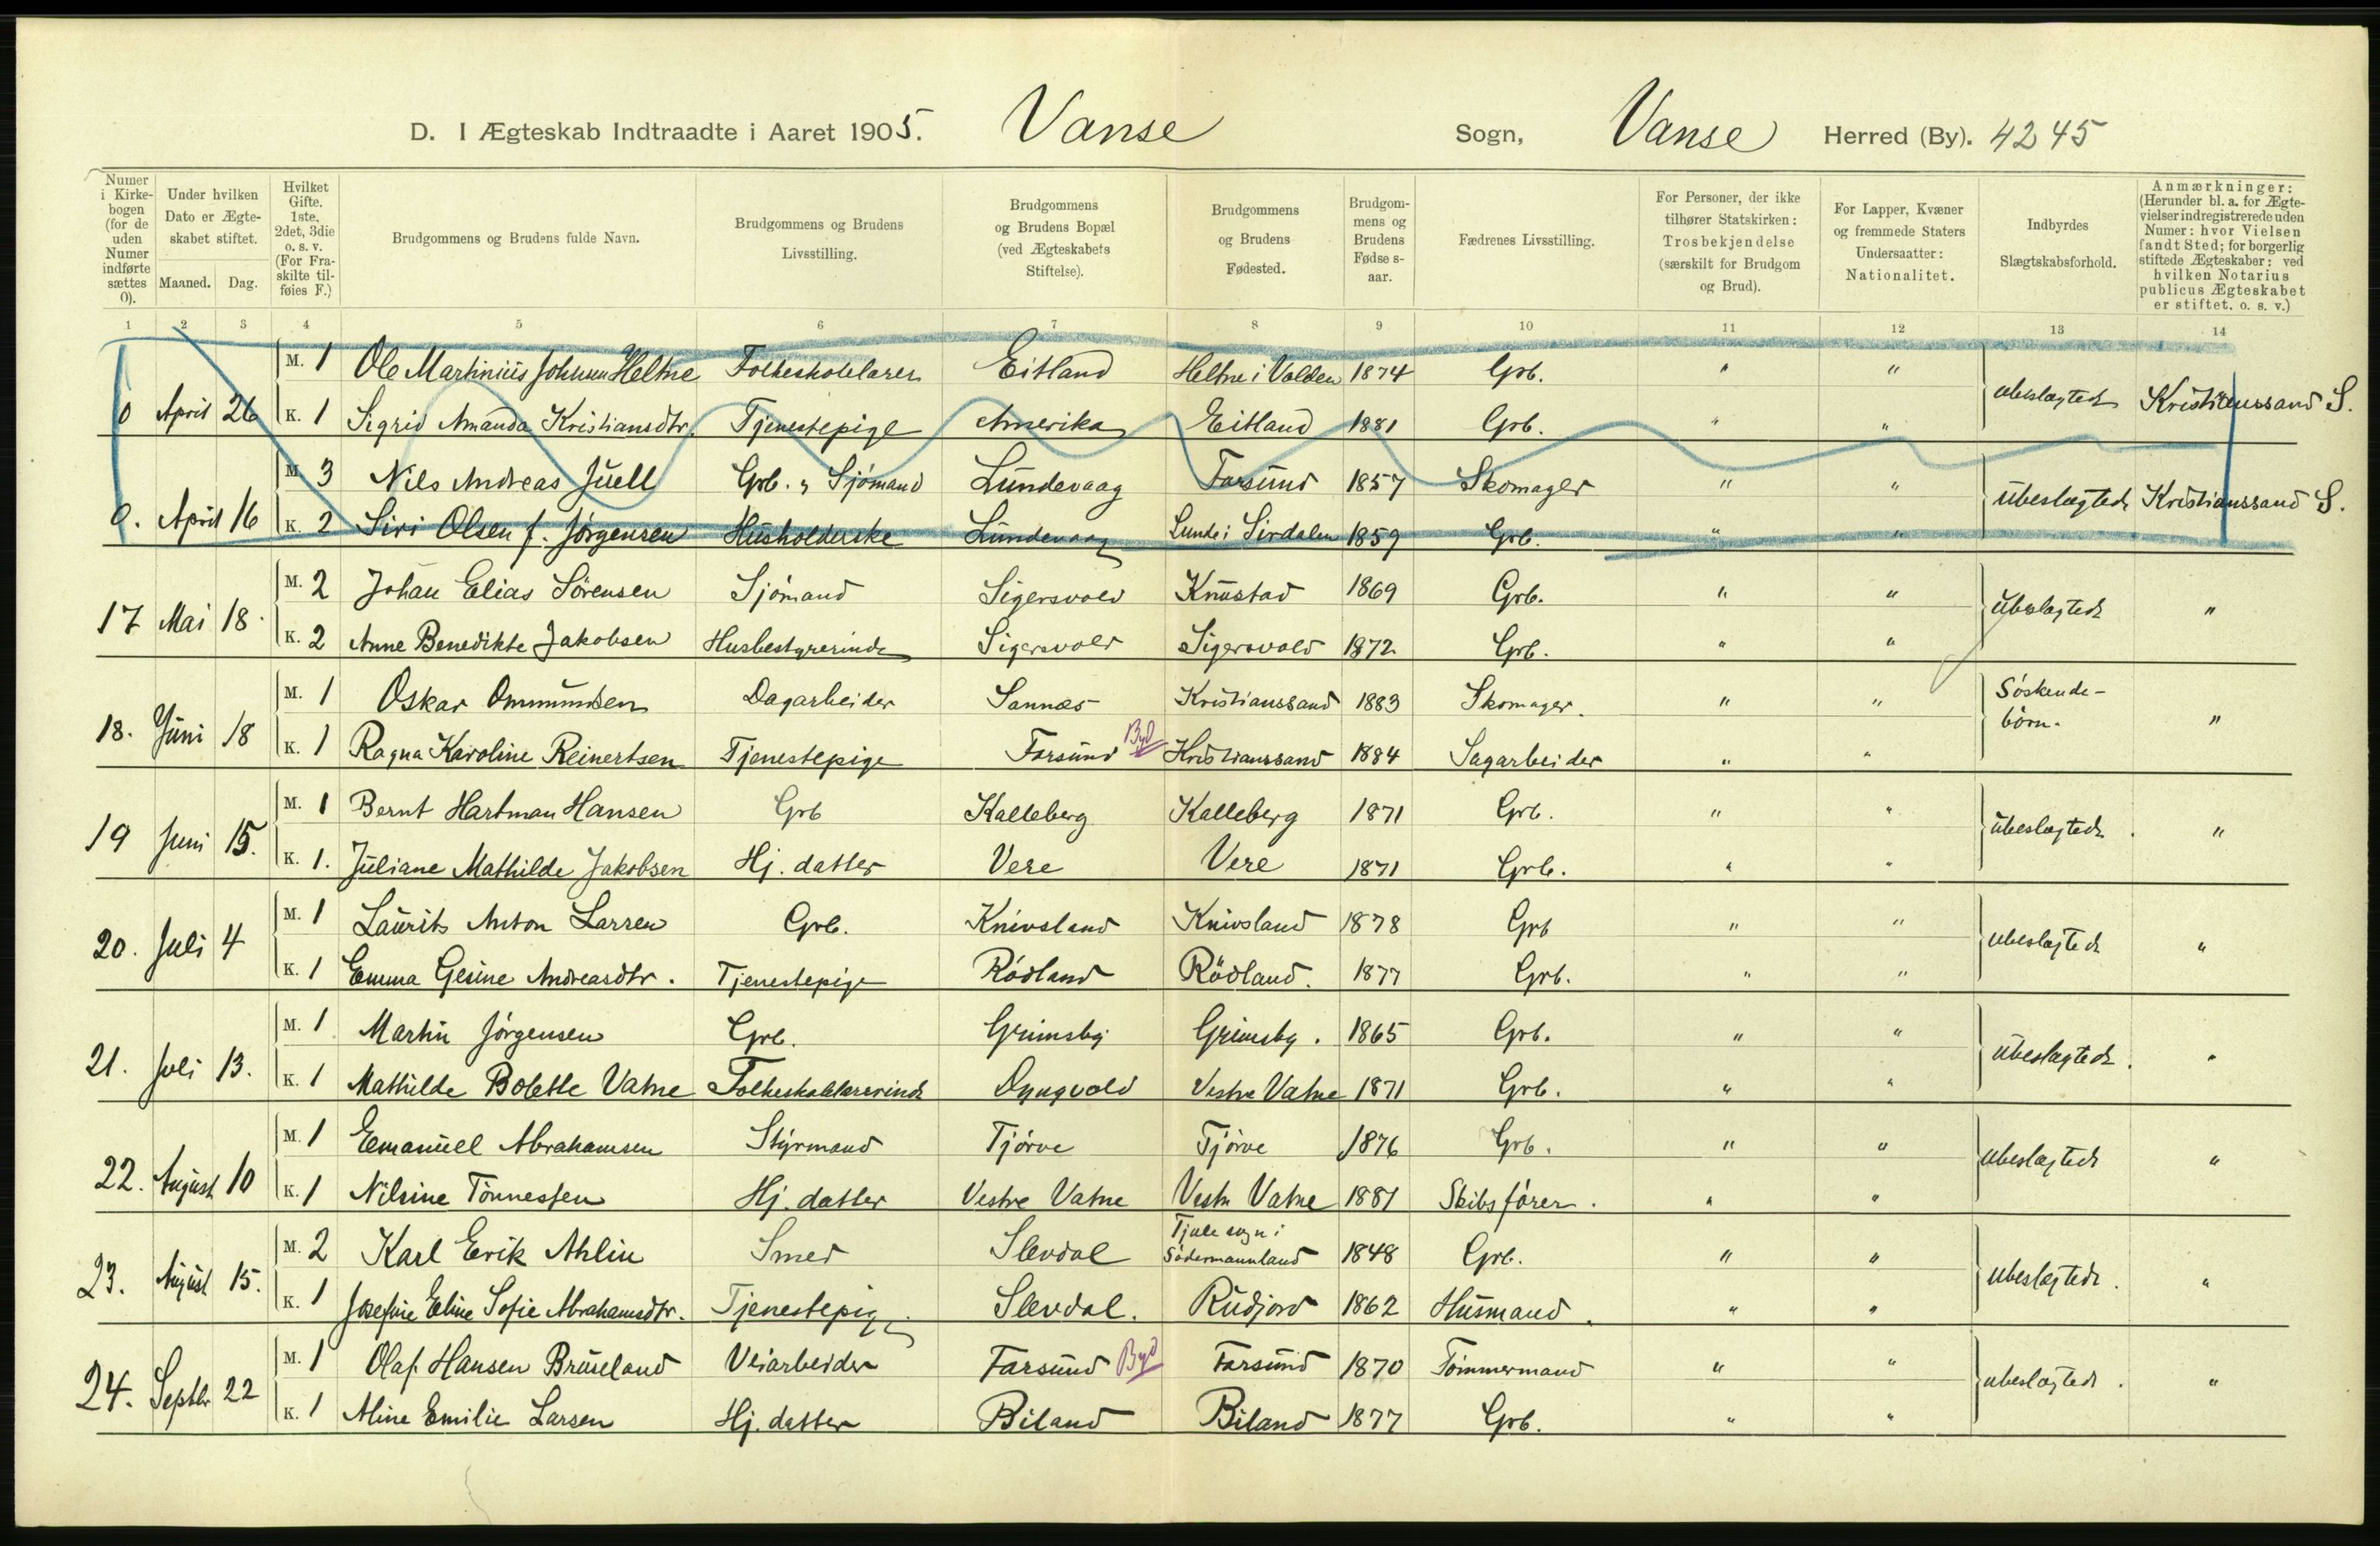 D. I Ægteskab Indtraadte i Aaret 1905. Vanse Sogn, Vanse Herred (By). 4245
Numer i Kirkebogen (for de uden Numer indførte sættes 0).
Under hvilken Dato er Ægteskabet stiftet.
Maaned. Dag.
Hvilket Gifte. 1ste, 2det, 3die o. s. v. (For Fraskilte tilføies F.)
Brudgommens og Brudens fulde Navn.
Brudgommens og Brudens Livsstilling.
Brudgommens og Brudens Bopæl (ved Ægteskabets Stiftelse).
Brudgommens og Brudens Fødested.
Brudgommens og Brudens Fødse s-aar.
Fædrenes Livsstilling.
For Personer, der ikke tilhører Statskirken: Trosbekjendelse (særskilt for Brudgom og Brud).
For Lapper, Kvæner og fremmede Staters Undersaatter: Nationalitet.
Indbyrdes Slægtskabsforhold.
Anmærkninger: (Herunder bl. a. for Ægtevielser indregistrerede uden Numer: hvor Vielsen fandt Sted; for borgerlig stiftede Ægteskaber: ved hvilken Notarius publicus Ægteskabet er stiftet. o. s. v.)
1 2 3 4 5 6 7 8 9 10 11 12 13 14
M. 1 Ole Martinius Johnsen Heltne Folkeskolelærer Eitland Heltne i Volden 1874 Grb. " "
0 April 26 K. 1 Sigrid Amanda Kristiansdtr. Tjenestepige Amerika Eitland 1881 Grb. " " ubeslægtede Kristianssand S.
M. 3 Nils Andreas Juell Grb. & Sjómand Lundevaag Farsund 1857 Skomager " "
0. April 16 K. 2 Siri Olsen f. Jørgensen Husholderske Lundevaag Lunde i Sirdalen 1859 Grb. " " ubeslægtede Kristianssand S.
M. 2 Johan Elias Sörensen Sjómand Sigersvold Knustad 1869 Grb. " "
17 Mai 18 K. 2 Anne Benedikte Jakobsen Husbestyrerinde Sigersvold Sigersvold 1872 Grb. " " ubeslægtede "
M. 1 Oskar Ommundsen Dagarbeider Sannes Kristianssand 1883 Skomager. " " Sóskendebórn.
18. Juni 18 K. 1 Ragna Karoline Reinertsen Tjenestepige Farsund Byd Kristianssand 1884 Sagarbeider " " "
M. 1 Bernt Hartman Hansen Grb Kalleberg Kalleberg 1871 Grb. " "
19 Juni 15. K. 1. Juliane Mathilde Jakobsen Hj. datter Vere Vere 1871 Grb. " " ubeslægtede. "
M. 1 Laurits Anton Larsen Grb. Knivsland Knivsland 1878 Grb " "
20. Juli 4 K. 1 Emma Gesine Andreasdtr. Tjenestepige Ródland Rödland. 1877 Grb. " " ubeslægtede "
M. 1 Martin Jórgensen Grb. Grimsby Grimsby. 1865 Grb. " "
21. Juli 13. K. 1 Mathilde Bolette Vatne Folkeskolelærerinde Dyngvold Vestre Vatne 1871 Grb. " " ubeslægtede. "
M. 1 Emanuell Abrahamsen Styrmand Tjórve Tjórve 1876 Grb. " "
22. August 10 K. 1 Nilsine Tönnessen Hj. datter Vestre Vatne Vestre Vatne 1881 Skibsfórer. " " ubeslægtede "
M. 2 Karl Erik Ahlin Smed Slevdal sogn i Södermannland 1848 Grb. " "
23. August 15. K. 1 Josefine Eline Sofie Abrahamsdtr. Tjenestepige Slevdal. Rudjord 1862 Husmand. " " ubeslægtede. "
M. 1 Olaf Hansen Bruseland Veiarbeider Farsund Byd Farsund 1870 Tómmermand " "
24. Septbr 22 K. 1 Aline Emilie Larsen Hj. datter Biland Biland 1877 Grb. " " ubeslægtede. "